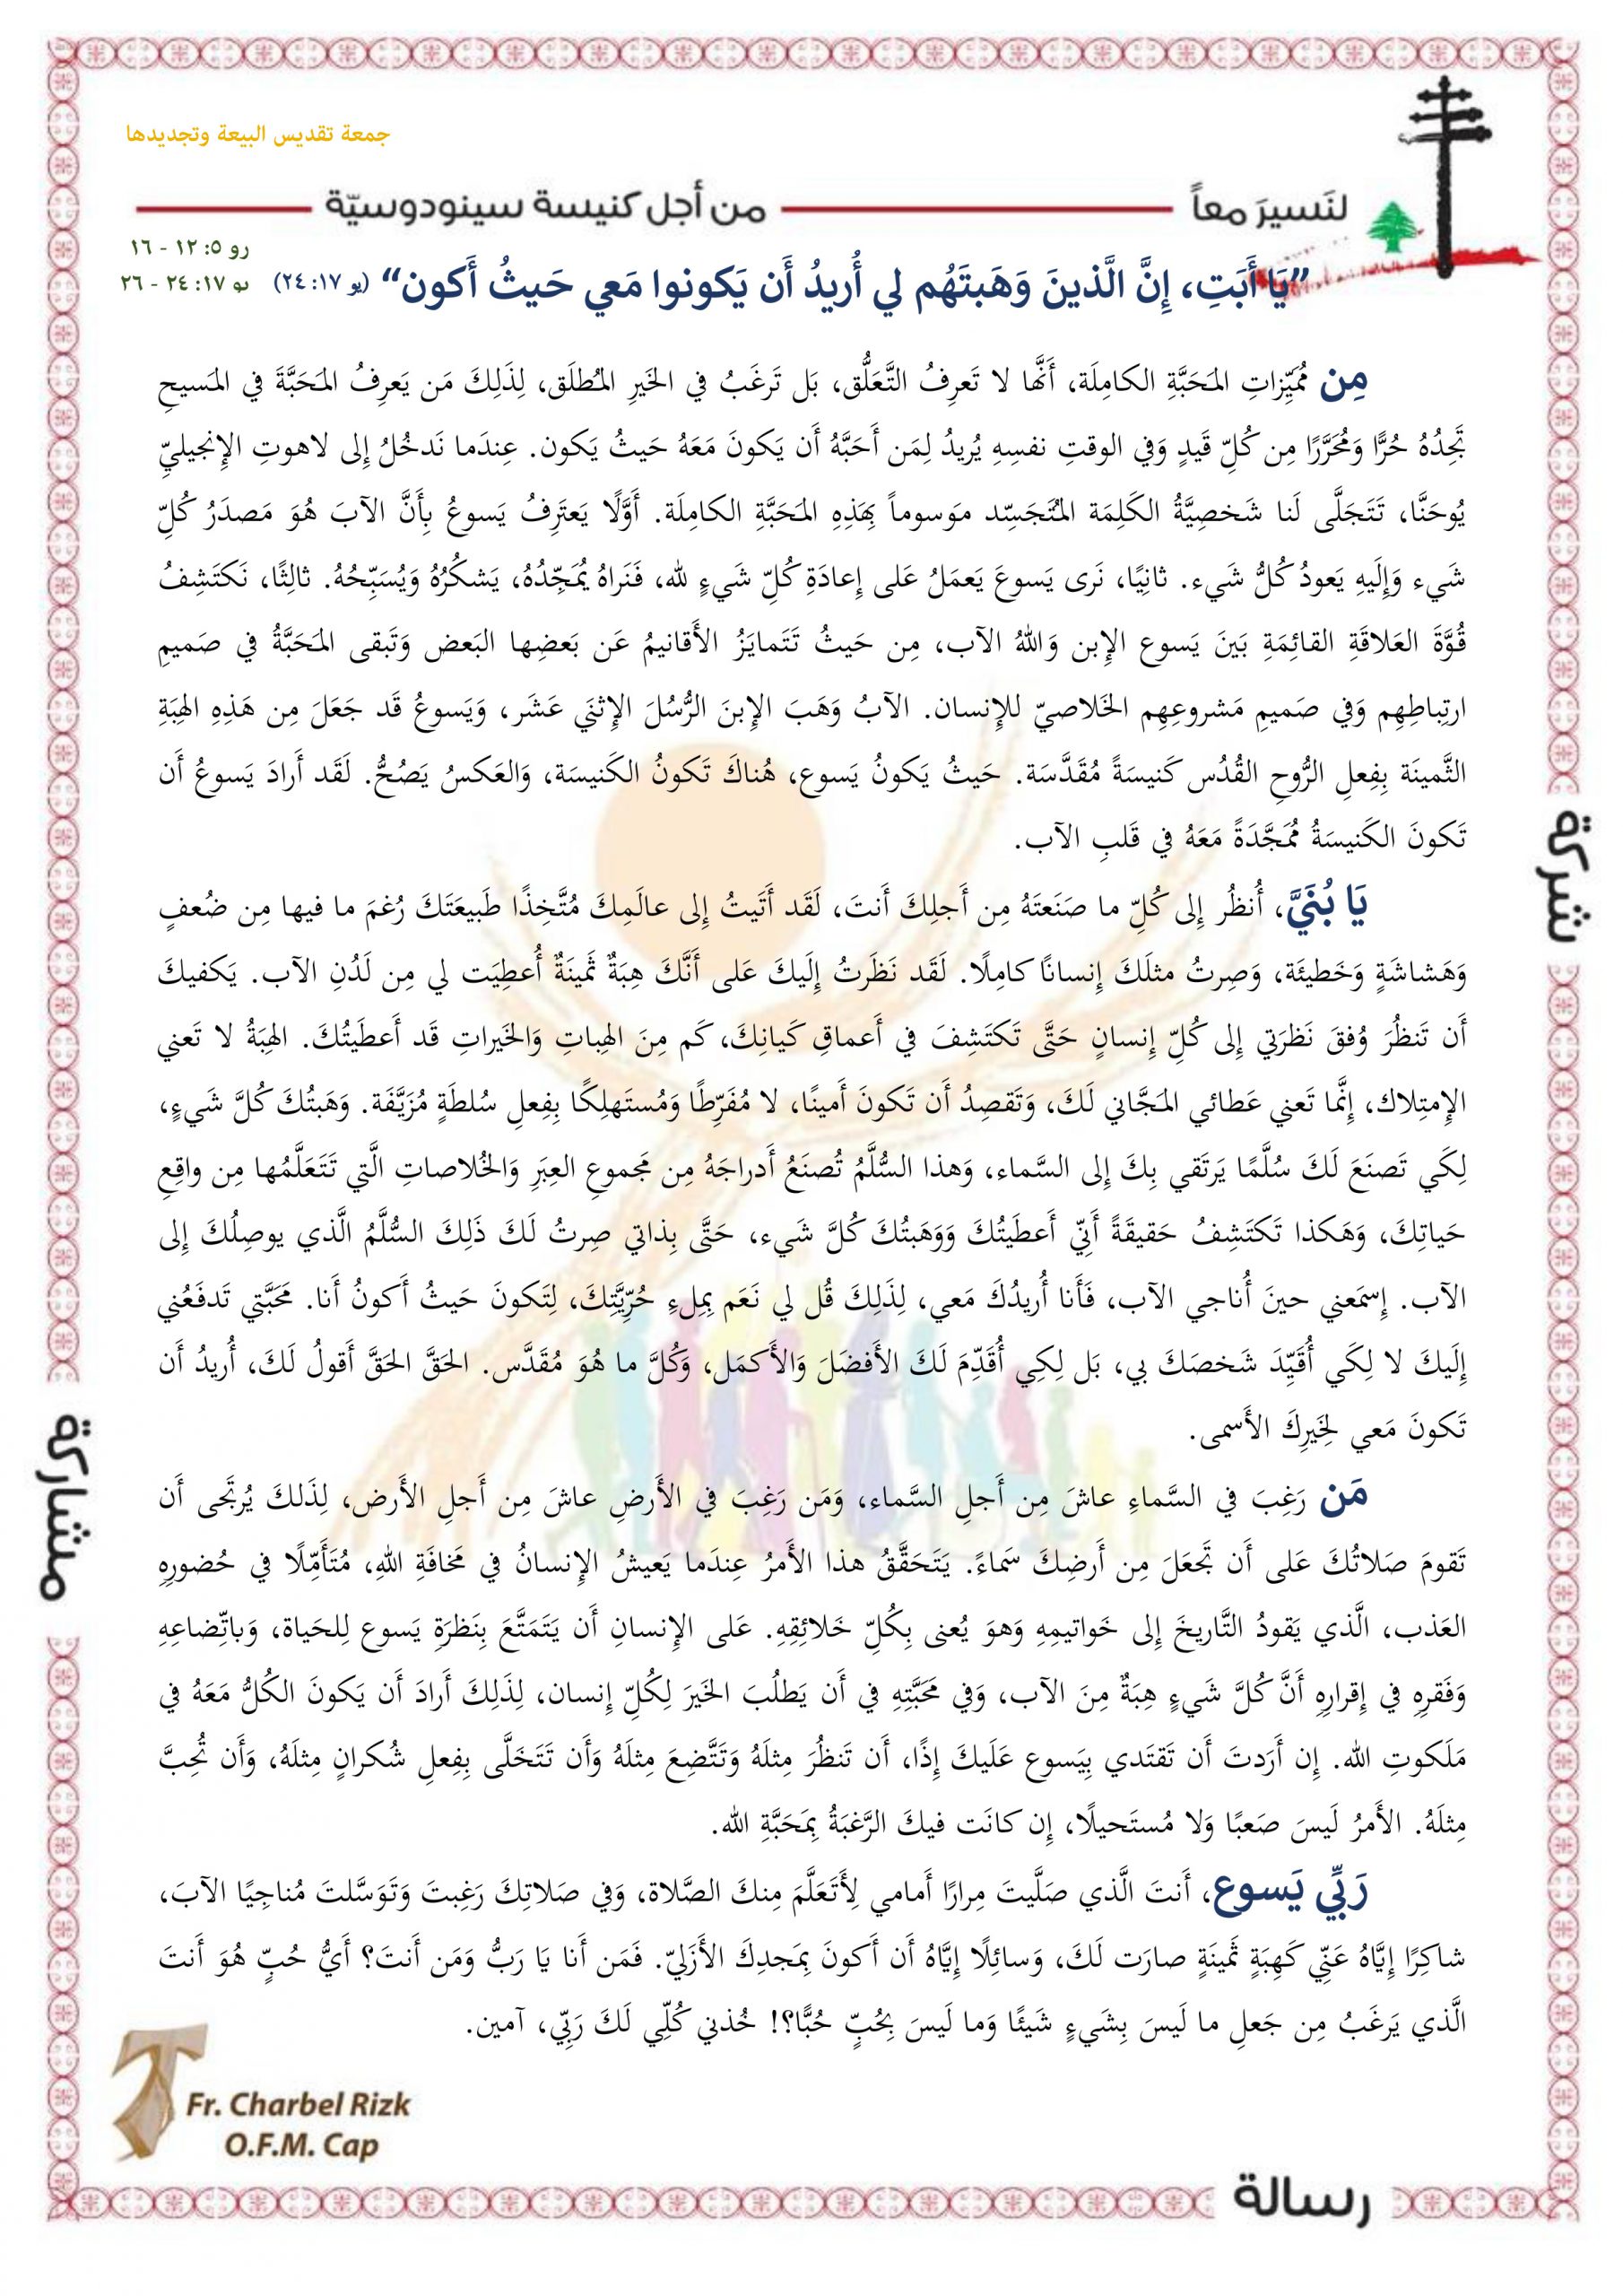 جمعة تقديس البيعة وتجديدها
لنَسيرَ معاً
من أجل كنيسة سينودوسيّة
رو ٥: ١٢ - ١٦
يو ١٧: ٢٤ - ٢٦
”يَا أَبَتِ، إِنَّ الَّذينَ وَهَبتَهُم لي أُريدُ أَن يَكونوا مَعي حَيثُ أَكون“ (يو ١٧: ٢٤)
مِن مُمَيِّزاتِ المَحَبَّةِ الكامِلَة، أَنَّها لا تَعرِفُ التَّعَلُّق، بَل تَرغَبُ في الخَيرِ المُطلَق، لِذَلِكَ مَن يَعرِفُ المَحَبَّةَ في المَسيحِ
تَجِدُهُ حُرًّا وَمُحَرَّرًا مِن كُلِّ قَيدٍ وَفي الوقتِ نفسِهِ يُريدُ لِمَن أَحَبَّهُ أَن يَكونَ مَعَهُ حَيثُ يَكون. عِندَما نَدخُلُ إِلى لاهوتِ الإِنجيليِّ
يُوحَنَّا، تَتَجَلَّى لَنا شَخصِيَّةُ الكَلِمَة المُتَجَسِّد موَسوماً بِهَذِهِ المَحَبَّةِ الكامِلَة. أَوَّلًا يَعتَرِفُ يَسوعُ بِأَنَّ الآبَ هُوَ مَصدَرُ كُلِّ
شَيء وَإِلَيهِ يَعودُ كُلُّ شَيء. ثانِيًا، نَرى يَسوعَ يَعمَلُ عَلى إِعادَةِ كُلِّ شَيءٍ لله، فَنَراهُ يُمَجِّدُهُ، يَشكُرُهُ وَيُسَبِّحُهُ. ثالِثًا، نَكتَشِفُ
قُوَّةَ العَلاقَةِ القائِمَةِ بَينَ يَسوع الإِبن وَاللهُ الآب، مِن حَيثُ تَتَمايَزُ الأَقانيمُ عَن بَعضِها البَعض وَتَبقى المَحَبَّةُ في صَميمِ
ارتِباطِهِم وَفي صَميمِ مَشروعِهِم الخَلاصيّ للإِنسان. الآبُ وَهَبَ الإِبنَ الرُّسُلَ الإِثنَي عَشَر، وَيَسوعُ قَد جَعَلَ مِن هَذِهِ الهِبَةِ
الثَّمينَة بِفِعلِ الرُّوحِ القُدُس كَنيسَةً مُقَدَّسَة. حَيثُ يَكونُ يَسوع، هُناكَ تَكونُ الكَنيسَة، وَالعَكسُ يَصُحُّ. لَقَد أَرادَ يَسوعُ أَن
تَكونَ الكَنيسَةُ مُمَجَّدَةً مَعَهُ في قَلبِ الآب.
يَا بُنَيَّ، أُنظُر إِلى كُلِّ ما صَنَعتَهُ مِن أَجلِكَ أَنتَ، لَقَد أَتَيتُ إِلى عالَمِكَ مُتَّخِذًا طَبيعَتَكَ رُغمَ ما فيها مِن ضُعفٍ
وَهَشاشَةٍ وَخَطيئَة، وَصِرتُ مثلَكَ إِنسانًا كامِلًا. لَقَد نَظَرتُ إِلَيكَ عَلى أَنَّكَ هِبَةٌ ثَمينَةٌ أُعطِيَت لي مِن لَدُنِ الآب. يَكفيكَ
أَن تَنظُرَ وُفقَ نَظرَتي إِلى كُلِّ إِنسانٍ حَتَّى تَكتَشِفَ في أَعماقِ كَيانِكَ، كَم مِنَ الهِباتِ وَالخَيراتِ قَد أَعطَيتُكَ. الهِبَةُ لا تَعني
الإِمتِلاك، إِنَّما تَعني عَطائي المَجَّاني لَكَ، وَتَقصِدُ أَن تَكونَ أَمينًا، لا مُفَرِّطًا وَمُستَهلِكًا بِفِعلِ سُلطَةٍ مُزَيَّفَة. وَهَبتُكَ كُلَّ شَيءٍ،
لِكَي تَصنَعَ لَكَ سُلَّمًا يَرتَقي بِكَ إِلى السَّماء، وَهذا السُّلَّمُ تُصنَعُ أَدراجَهُ مِن مَجموعِ العِبَرِ وَالخُلاصاتِ الَّتي تَتَعَلَّمُها مِن واقِعِ
حَياتِكَ، وَهَكذا تَكتَشِفُ حَقيقَةً أَنِّي أَعطَيتُكَ وَوَهَبتُكَ كُلَّ شَيء، حَتَّى بِذاتي صِرتُ لَكَ ذَلِكَ السُّلَّمُ الَّذي يوصِلُكَ إِلى
الآب. إِسمَعني حينَ أُناجي الآب، فَأَنا أُريدُكَ مَعي، لِذَلِكَ قُل لي نَعَم بِمِلءِ حُرِّيَّتِكَ، لِتَكونَ حَيثُ أَكونُ أَنا. مَحَبَّتي تَدفَعُني
إِلَيكَ لا لِكَي أُقَيِّدَ شَخصَكَ بي، بَل لِكِي أُقَدِّمَ لَكَ الأَفضَلَ وَالأَكمَل، وَكُلَّ ما هُوَ مُقَدَّس. الحَقَّ الحَقَّ أَقولُ لَكَ، أُريدُ أَن
تَكونَ مَعي لِخَيرِكَ الأَسمى.
مَن رَغِبَ في السَّماءِ عاشَ مِن أَجلِ السَّماء، وَمَن رَغِبَ في الأَرضِ عاشَ مِن أَجلِ الأَرض، لِذَلكَ يُرتَجى أَن
تَقومَ صَلاتُكَ عَلى أَن تَجعَلَ مِن أَرضِكَ سَماءً. يَتَحَقَّقُ هذا الأَمرُ عِندَما يَعيشُ الإِنسانُ في مَخافَةِ اللهِ، مُتَأَمِّلًا في حُضورِهِ
العَذب، الَّذي يَقودُ التَّاريخَ إِلى خَواتيمِهِ وَهوَ يُعنى بِكُلِّ خَلائِقِهِ. عَلى الإِنسانِ أَن يَتَمَتَّعَ بِنَظرَةِ يَسوع لِلحَياة، وَباتِّضاعِهِ
وَفَقرِهِ في إِقرارِهِ أَنَّ كُلَّ شَيءٍ هِبَةٌ مِنَ الآب، وَفي مَحَبَّتِهِ في أَن يَطلُبَ الخَيرَ لِكُلِّ إِنسان، لِذَلِكَ أَرادَ أَن يَكونَ الكُلُّ مَعَهُ في
مَلَكوتِ الله. إِن أَرَدتَ أَن تَقتَدي بِيَسوع عَلَيكَ إِذًا، أَن تَنظُرَ مِثلَهُ وَتَتَّضِعَ مِثلَهُ وَأَن تَتَخَلَّى بِفِعلِ شُكرانٍ مِثلَهُ، وَأَن تُحِبَّ
مِثلَهُ. الأَمرُ لَيسَ صَعبًا وَلا مُستَحيلًا، إِن كانَت فيكَ الرَّغبَةُ بِمَحَبَّةِ الله.
رَبِّي يَسوع، أَنتَ الَّذي صَلَّيتَ مِرارًا أَمامي لِأَتَعَلَّمَ مِنكَ الصَّلاة، وَفي صَلاتِكَ رَغِبتَ وَتَوَسَّلتَ مُناجِيًا الآبَ،
شاكِرًا إِيَّاهُ عَنِّي كَهِبَةٍ ثَمينَةٍ صارَت لَكَ، وَسائِلًا إِيَّاهُ أَن أَكونَ بِمَجدِكَ الأَزَليّ. فَمَن أَنا يَا رَبُّ وَمَن أَنتَ؟ أَيُّ حُبٍّ هُوَ أَنتَ
الَّذي يَرغَبُ مِن جَعلِ ما لَيسَ بِشَيءٍ شَيئًا وَما لَيسَ بِحُبٍّ حُبًّا؟! خُذني كُلِّي لَكَ رَبِّي، آمين.
شركة
مشاركة
Fr. Charbel Rizk
O.F.M. Cap
رسالة